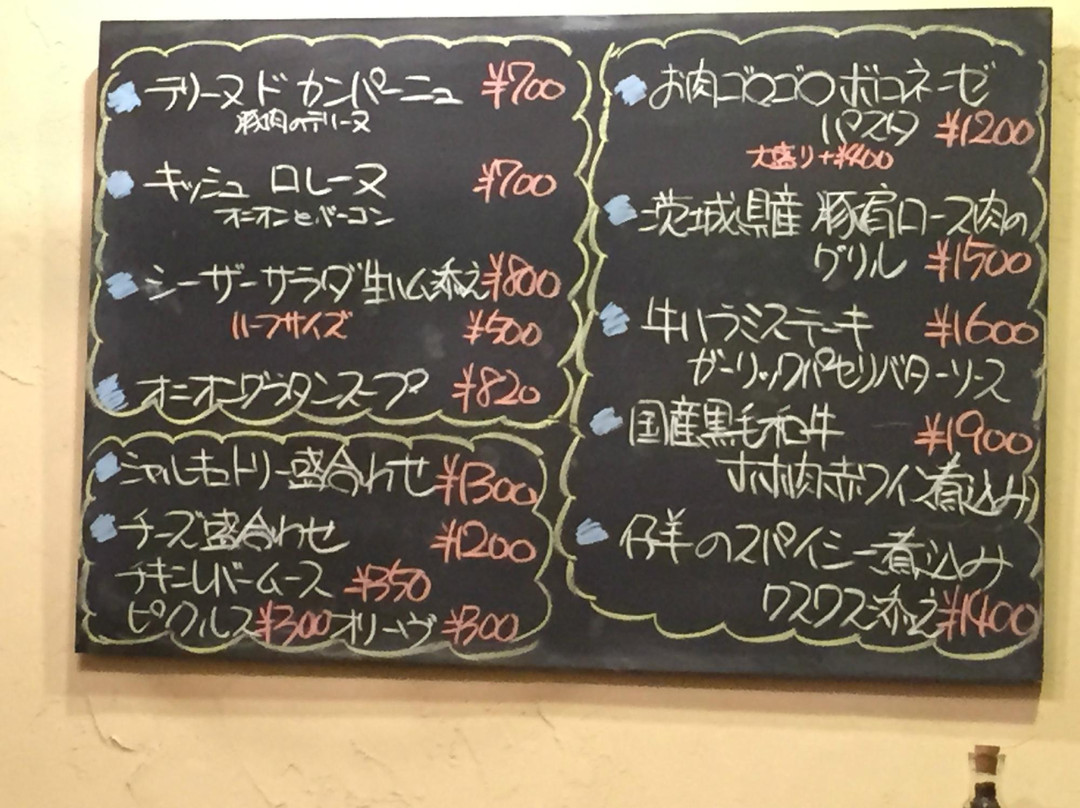 テリーヌ ド カンパーニュ ¥700
豚肉のテリーヌ
キッシュ ロレーヌ ¥700
オニオンとベーコン
シーザーサラダ 生ハム添え ¥800
ハーフサイズ ¥500
オニオングラタンスープ ¥820
シャルキュトリー盛合わせ ¥1300
チーズ盛合わせ ¥1200
チキンレバームース ¥350
ピクルス ¥300 オリーヴ ¥300
お肉ゴロゴロ ボロネーゼ
パスタ ¥1200
大盛り+¥400
茨城県産 豚肩ロース肉の
グリル ¥1500
牛ハラミステーキ ¥1600
ガーリックパセリバターソース
国産黒毛和牛 ¥1900
ホホ肉赤ワイン煮込み
仔羊のスパイシー煮込み
クスクス添え ¥1400